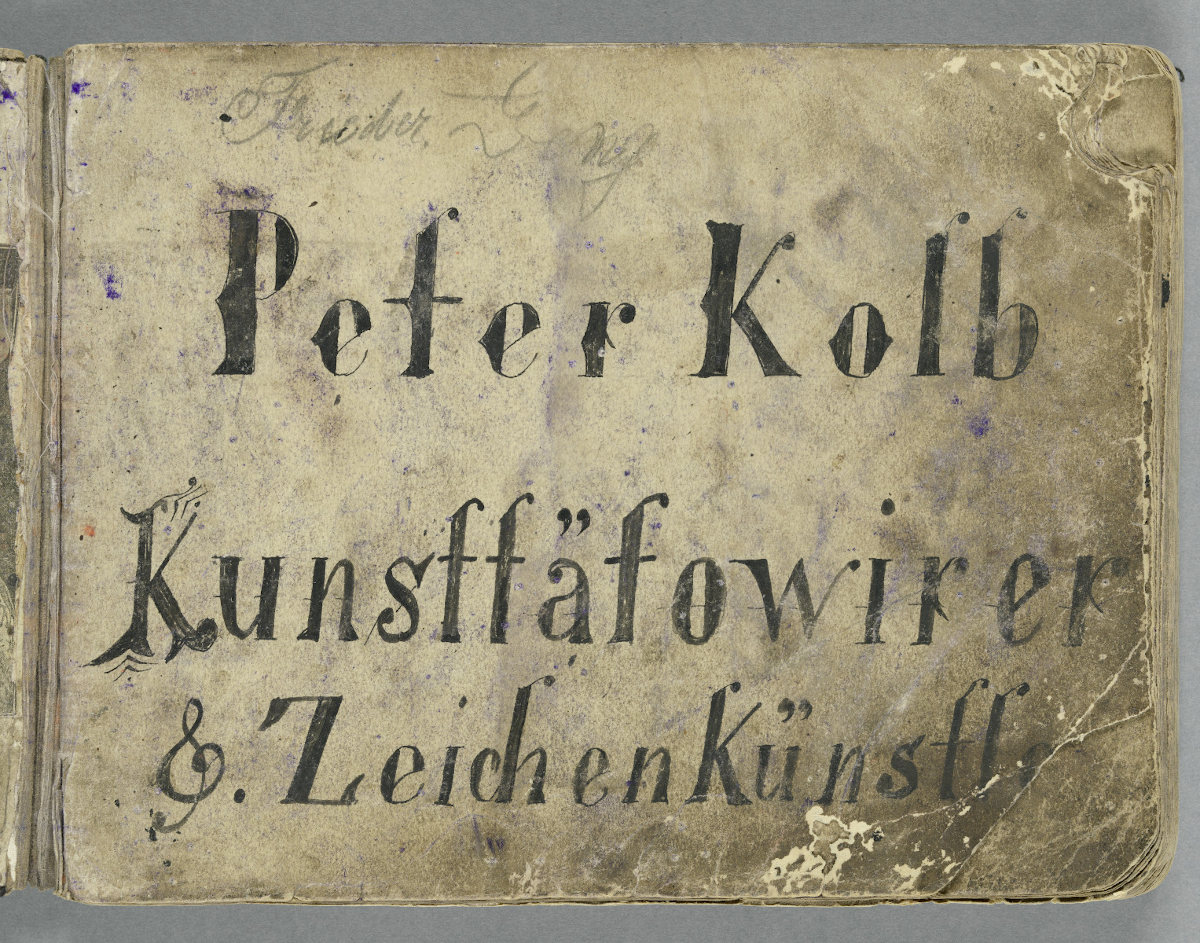 Peter Kolb
Kunsttätowirer
&. Zeichenkünstle